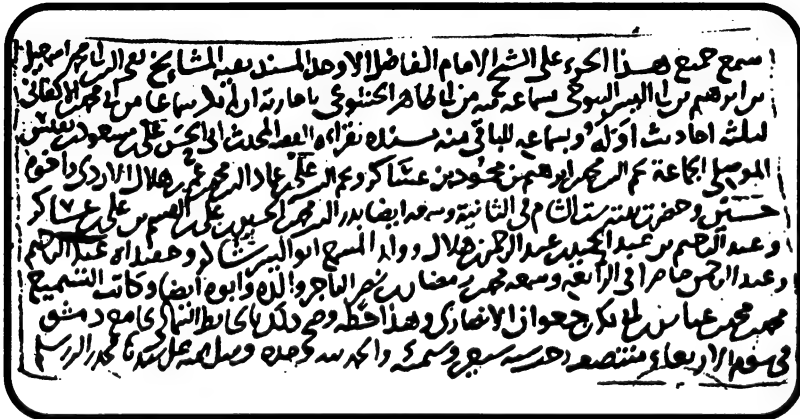 سمع جميع هذا الجزء على الشيخ الامام الفاضل الاوحد المسند بقية المشايخ تقي الدين ابي محمد اسمعيل
بن ابرهيم بن ابي اليسر التنوخي بسماعه فيه من ابي طاهر الخشوعي باجازته
لثلثة احاديث اوله وبسماعه للباقي منه بسنده بقراءة الفقيه المحدث ابي الحسن علي بن مسعود بن نفيس
الموصلي الجماعة نجم الدين محمد بن ابرهيم بن محمود بن عساكر ونجم الدين علي بن عماد الدين محمد بن عمر بن هلال الازدي واخوه
حسين وحضرت ست الشام في الثانية وسمعه ايضا بدر الدين محمد بن الحسين بن علي بن القسم بن علي بن عساكر
وعبد الرحيم بن عبد الحميد بن عبد الرحمن بن هلال وولد المسمع ابو اليسر شاكر وحفيداه عبد الرحيم
وعبد الرحمن حاضرا في الرابعة وسمعه محمد بن رمضان بن التاجر والده وابوه ايضا وكاتب التسميع
محمد بن محمد بن عباس بن ابي بكر بن جعوان الانصاري وهذا خطه وصح ذلك بالحايط الشمالي جامع دمشق
في يوم الاربعاء منتصف وستمئة والحمد لله وحده وصلى الله على سيدنا محمد